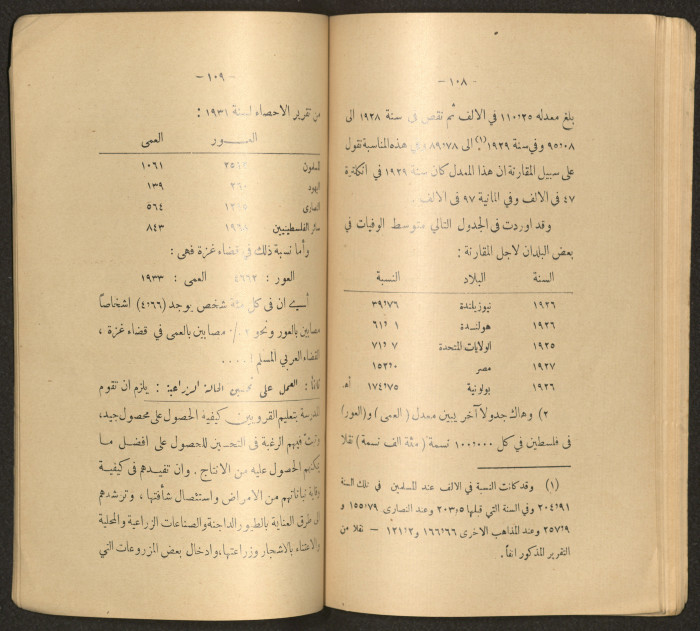 — ١٠٨ —
بلغ معدله ١١٠٬٢٥ في الالف ثم نقص في سنة ١٩٢٨ الى
٩٥٬٠٨ وفي سنة ١٩٢٩ (١) الى ٨٩٬٧٨ وفي هذه المناسبة نقول
على سبيل المقارنة ان هذا المعدل كان سنة ١٩٢٩ في انكلترة
٤٧ في الالف وفي المانية ٩٧ في الالف .
وقد اوردت في الجدول التالي متوسط الوفيات في
بعض البلدان لاجل المقارنة :
السنة البلاد النسبة
١٩٢٦ نيوزيلندة ٣٩٬٧٦
١٩٢٦ هولندة ٦١
١٩٢٥ الولايات المتحدة ٧١٬٧
١٩٢٧ مصر
١٩٢٦ بولونية ١٧٤٬٧٥ اهـ
٢) وهاك جدولاً آخر يبين معدل ( العمى ) و( العور )
في فلسطين في كل ١٠٠٬٠٠٠ نسمة ( مئة الف نسمة ) نقلا
(١) وقد كانت النسبة في الالف عند المسلمين في تلك السنة
٢٠٤٬٩١ وفي السنة التي قبلها ٢٠٣٬٥ وعند النصارى ١٥٥٬٧٩ و
٢٥٧٬٩ وعند المذاهب الاخرى ١٦٦٬٦٦ و ١٢١٬٢ — نقلا من
التقرير المذكور انفاً .
— ١٠٩ —
من تقرير الاحصاء لسنة ١٩٣١ :
العــور العمى
المسلمون ١٠٦١
اليهود ٢٦٠ ١٣٩
النصارى ٥٦٤
سائر الفلسطينيين ١٩٦٨ ٨٤٣
وأما نسبة ذلك في قضاء غزة فهى :
العور : ٤٦٦٢ العمى : ١٩٣٣
أي ان في كل مئة شخص يوجد (٤٬٦٦) اشخاصاً
مصابين بالعور ونحو ٢ ٪ مصابين بالعمى في قضاء غزة ،
القضاء العربي المسلم !....
ثانياً : العمل على تحسين الحالة الزراعية : يلزم ان تقوم
المدرسة بتعليم القرويين كيفية الحصول على محصول جيد ،
وتبث فيهم الرغبة في التحسين للحصول على افضل ما
يمكنهم الحصول عليه من الانتاج . وان تفيدهم في كيفية
وقاية نباتاتهم من الامراض واستئصال شأفتها ، وترشدهم
الى طرق العناية بالطيور الداجنة والصناعات الزراعية والمحلية
والاعتناء بالاشجار وزراعتها ، وادخال بعض المزروعات التي